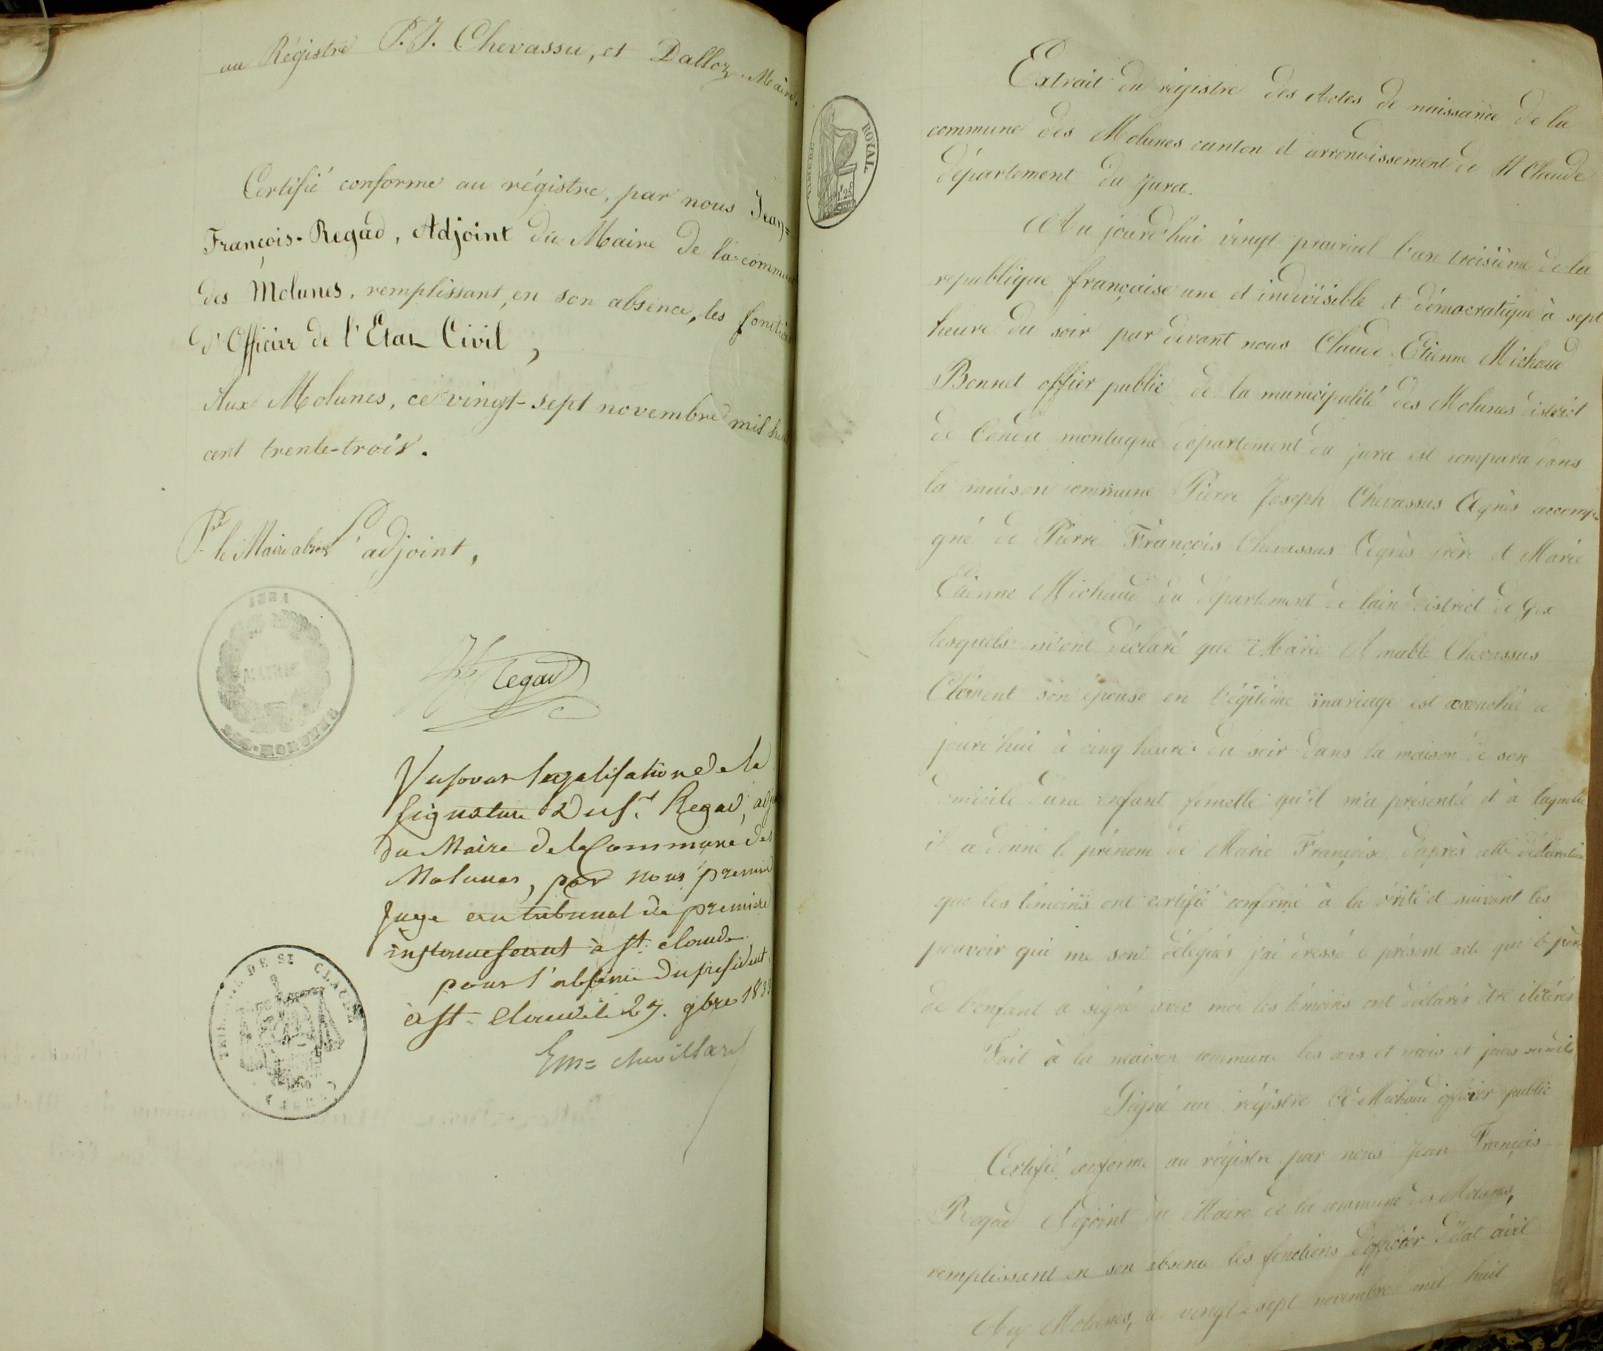 au Régistre P. J. Chevassu, et Dalloz, Maire.
Certifié conforme au régistre, par nous Jean=
François-Regad, Adjoint du Maire de la commune
des Molunes, remplissant, en son absence, les fonctions
d'Officier de l'Etat Civil,
Aux Molunes, ce vingt-sept novembre mil huit
cent trente-trois.
Pr le Maire absent L'adjoint,
MAIRIE
DES MOLUNES
Regad
Vu pour legalisation de la
signature du Sr. Regad, adjt
du Maire de la Commune des
Molunes, par nous premier
Juge au tribunal de premiere
instance séant à St. Claude
pour l'absence du president.
à St. Claude le 27. 9bre 1833
DE ST CLAUDE
JURA
TIMBRE ROYAL
Extrait du régistre des Actes de naissance de la
commune des Molunes canton et arrondissement de St Claude
département du Jura.
Au jourd'hui vingt prairial l'an troisième de la
republique française une et indivisible et démocratique à sept
heure du soir par devant nous Claude Etienne Michaud
Bonnet offier public de la municipalité des Molunes district
de Condat montagne département du jura est comparu dans
la maison commune Pierre Joseph Chevassus Agnès accompa
gné de Pierre François Chevassus Agnès père et Marie
Etienne Michaud du département de lain district de Gex
lesquels m'ont déclaré que Marie Amable Chevassus
Clément son épouse en légitime mariage est accouchée a
jourd'hui à cinq heures du soir dans la maison de son
domicile d'une enfant femelle qu'il m'a présenté et à laquelle
il a donné le prénom de Marie Françoise, d'après cette déclaration
que les témoins ont certifié conforme à la vérité et suivant les
pouvoir qui me sont délégués j'ai dressé le présent acte que le père
de l'enfant a signé avec moi les témoins ont déclarés être iletérés
Fait à la maison commune les ans et mois et jours susdits
Signé au régistre CE Michaud officier public
Certifié conforme au régistre par nous Jean François
Regad Adjoint du Maire de la commune des Molunes,
remplissant en son absence les fonctions d'officier d'état civil
Aux Molunes, ce vingt-sept novembre mil huit